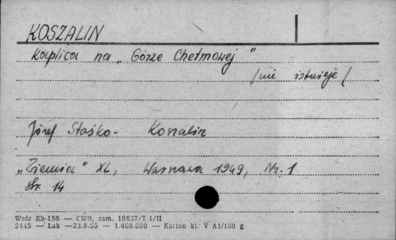 KOSZALIN
Kaplica na „Górze Chełmowej"
/nie istnieje/
Józef Staśko - Koszalin
„Ziemia" XL, Warszawa 1949, Nr. 1
str. 14
Wzór Kb-156 — CWD, zam. 10837/T I/II
2445 — Łak —23.8.55 — 1.400.000 — Karton kl. V A1/160 g